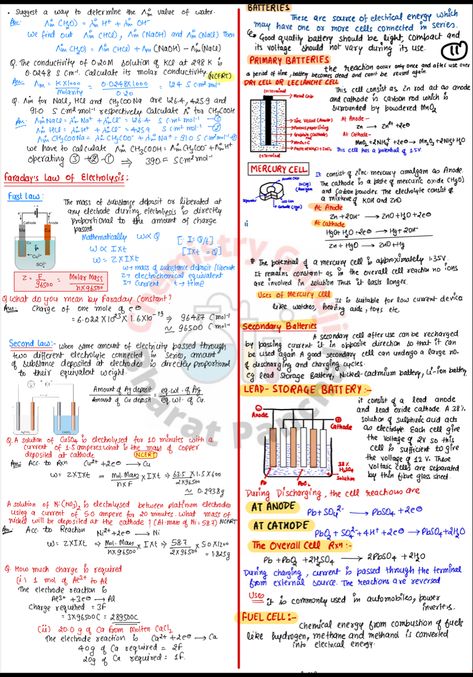 • Suggest a way to determine the Λ°m value of water.
Ans: Λ°m (H2O) = λ°H+ + λ°OH-
We find out Λ°m (HCl), Λ°m (NaOH) and Λ°m (NaCl) Then
Λ°m (H2O) = Λ°m (HCl) + Λ°m (NaOH) - Λ°m (NaCl)
Q. The conductivity of 0.20M solution of KCl at 298 K is
0.0248 S cm-1. Calculate its molar conductivity. NCERT
Ans: Λm = K X 1000 / Molarity = 0.0248X1000 / 0.20 = 124 S cm2 mol-1
Q. Λ°m for NaCl, HCl and CH3COONa are 126.4, 425.9 and
91.0 S cm2 mol-1 respectively. Calculate Λ° for CH3COOH
operating ③ + ② - ① ⇒ 390.5 S cm2 mol-1
Faraday's Law of Electrolysis:
First Law:
The mass of substance deposited or liberated at
any electrode during electrolysis is directly
proportional to the amount of charge
passed
Mathematically W ∝ Q
W ∝ I X t
W = Z I X t
W = mass of substance deposited / liberated
Z = electrochemical equivalent
I = Current t = time
Z = E / 96500 = Molar Mass / n X 96500
Q. What do you mean by Faraday Constant?
Ans: Charge of one mole of e-
= 6.022 X 10^23 X 1.6 X 10^-19 ⇒ 96487 C mol-1
≈ 96500 C mol-1
Second Law:- When same amount of electricity passed through
two different electrolyte connected in series, amount
of substance deposited at electrode is directly proportional
to their equivalent weight.
Amount of Ag deposited / Amount of Cu deposited = eq. wt. of Ag / eq. wt. of Cu
Q. A solution of CuSO4 is electrolysed for 10 minutes with a
current of 1.5 amperes. What is the mass of copper
deposited at cathode NCERT
Ans: Acc to Rxn Cu2+ + 2e- → Cu
W = Z X I X t ⇒ Mol. Mass / n X F X I X t ⇒ 63.5 X 1.5 X 600 / 2 X 96500
⇒ 0.2938g
A solution of Ni(NO3)2 is electrolysed between platinum electrodes
using a current of 5.0 ampere for 20 minutes. What mass of
nickel will be deposited at the cathode? (At. mass of Ni = 58.7) NCERT
Ans: Acc to Reaction Ni2+ + 2e- → Ni
W = Z I X t ⇒ Mol. Mass / n X 96500 X I X t ⇒ 58.7 / 2 X 96500 X 5.0 X 1200
= 1.825g
Q. How much charge is required
(i) 1 mol of Al3+ to Al
The electrode reaction is
Al3+ + 3e- → Al
Charge required = 3F
= 3 X 96500 C = 289500C
(ii) 20.0 g of Ca from Molten CaCl2
The electrode reaction is Ca2+ + 2e- → Ca
40g of Ca required = 2F
20g of Ca required = 1F.
BATTERIES
These are source of electrical energy which
may have one or more cells connected in series.
Good quality battery should be light, compact and
its voltage should not vary during its use.
PRIMARY BATTERIES
the reaction occur only once and after use over
a period of time, battery becomes dead and can't be reused again
DRY CELL OR LECLANCHE CELL
This cell consist of Zn rod as anode
and cathode is carbon rod which is
surrounded by powdered MnO2
At Anode -
Zn → Zn2+ + 2e-
At Cathode -
This cell has a potential of 1.5V
MERCURY CELL
It consist of zinc mercury amalgam as Anode
The cathode is a paste of mercuric oxide (HgO)
and carbon powder. The electrolyte consist of a
mixture of KOH and ZnO
At Anode
Zn + 2OH- → ZnO + H2O + 2e-
At Cathode
HgO + H2O + 2e- → Hg + 2OH-
Zn + HgO → ZnO + Hg
* The potential of a mercury cell is approximately 1.35V
It remains constant as in the overall cell reaction no ions
are involved in solution. Thus it lasts longer.
Uses of Mercury cell
It is suitable for low current device
like watches, hearing aids, toys etc.
Secondary Batteries
A secondary cell after use can be recharged
by passing current in opposite direction so that it can
be used again. A good secondary cell can undergo a large no.
of discharging and charging cycles.
eg Lead Storage Battery, Nickel-cadmium battery, Li-ion battery
LEAD-STORAGE BATTERY:-
Anode
Cathode
38% H2SO4 Solution
Pb
PbO2
it consist of a lead anode
and lead oxide cathode. A 38%
solution of sulphuric acid acts
as electrolyte. Each cell give
the voltage of 2V so this
cell is sufficient to give
the voltage of 12 V. These
voltaic cells are separated
by thin fibre glass sheet
During Discharging, the cell reactions are
AT ANODE
Pb + SO4 2- → PbSO4 + 2e-
AT CATHODE
PbO2 + SO4 2- + 4H+ + 2e- → PbSO4 + 2H2O
The Overall Cell Rxn:
Pb + PbO2 + 2H2SO4 → 2PbSO4 + 2H2O
During charging, current is passed through the terminal
from external source. The reactions are reversed
Uses it is commonly used in automobiles, power
inverters.
FUEL CELL:-
Chemical energy from combustion of fuels
like hydrogen, methane and methanol is converted
into electrical energy.